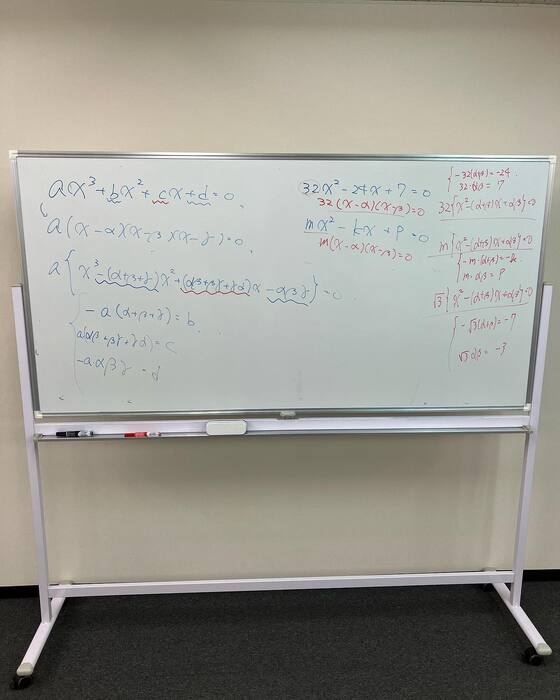 ax³+bx²+cx+d=0
a(x-α)(x-β)(x-γ)=0
a{x³-(α+β+γ)x²+(αβ+βγ+γα)x-αβγ}=0
-a(α+β+γ)=b
a(αβ+βγ+γα)=c
-a·αβγ=d
32x²-24x+7=0
32(x-α)(x-β)=0
mx²-kx+p=0
m(x-α)(x-β)=0
-32(α+β)=-24
32·αβ=7
32{x²-(α+β)x+αβ}=0
m{x²-(α+β)x+αβ}=0
-m·(α+β)=-k
m·αβ=p
√3{x²-(α+β)x+αβ}=0
-√3(α+β)=-7
√3αβ=-3